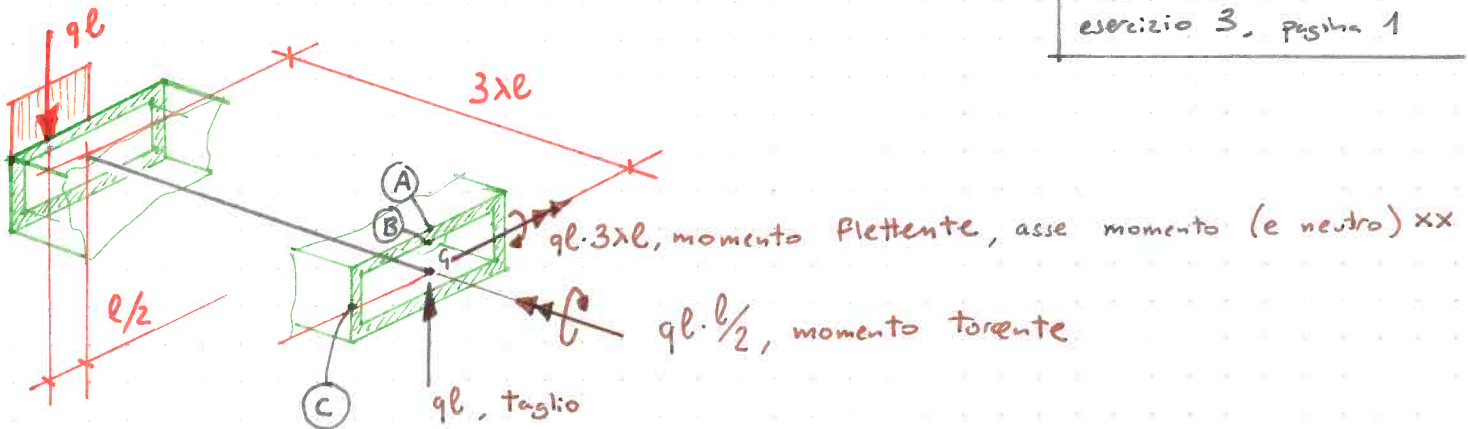 esercizio 3, pagina 1
ql
3λl
A
B
G
ql·3λl, momento flettente, asse momento (e neutro) xx
l/2
ql·l/2, momento torcente
C
ql, taglio